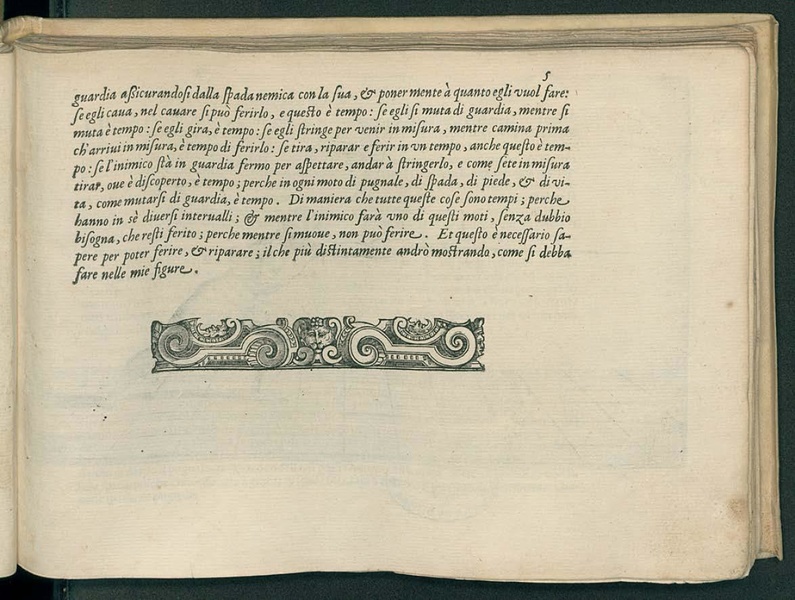 5
guardia assicurandosi dalla spada nemica con la sua, & poner mente à quanto egli vuol fare:
se egli caua, nel cauare si può ferirlo, e questo è tempo: se egli si muta di guardia, mentre si
muta è tempo: se egli gira, è tempo: se egli stringe per venir in misura, mentre camina prima
ch'arriui in misura, è tempo di ferirlo: se tira, riparar e ferir in vn tempo, anche questo è tem-
po: se l'inimico stà in guardia fermo per aspettare, andar à stringerlo, e come sete in misura
tirar, oue è discoperto, è tempo; perche in ogni moto di pugnale, di spada, di piede, & di vi-
ta, come mutarsi di guardia, è tempo. Di maniera che tutte queste cose sono tempi; perche
hanno in sè diuersi interualli; & mentre l'inimico farà vno di questi moti, senza dubbio
bisogna, che resti ferito; perche mentre si muoue, non può ferire. Et questo è necessario sa-
pere per poter ferire, & riparare; il che più distintamente andrò mostrando, come si debba
fare nelle mie figure.